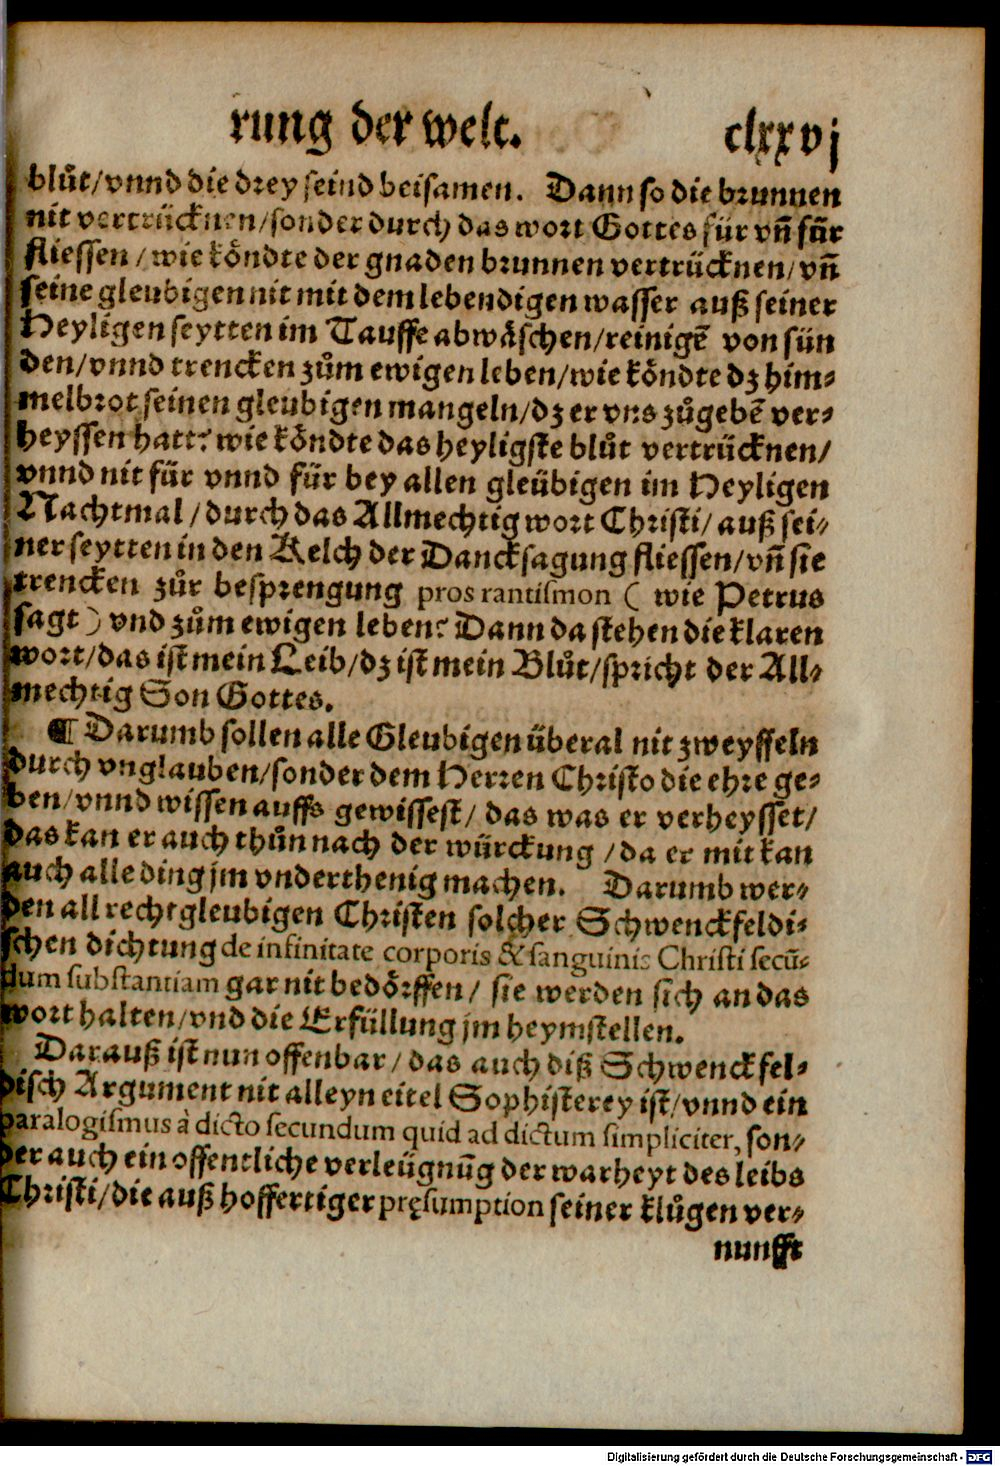 rung der welt. clxxvj
blůt/vnnd die drey seind beisamen. Dann so die brunnen
nit vertrücknen/sonder durch das wort Gottes für vñ für
fliessen/wie köndte der gnaden brunnen vertrücknen/vñ
seine gleubigen nit mit dem lebendigen wasser auß seiner
Heyligen seytten im Tauffe abwäschen/reinigẽ von sün
den/vnnd trencken zům ewigen leben/wie köndte dz him⸗
melbrot seinen gleubigen mangeln/dz er vns zůgebẽ ver⸗
heyssen hatt? wie köndte das heyligste blůt vertrücknen/
vnnd nit für vnnd für bey allen gleübigen im Heyligen
Nachtmal/durch das Allmechtig wort Christi/auß sei⸗
ner seytten in den Kelch der Dancksagung fliessen/vñ sie
trencken zůr besprengung pros rantismon ( wie Petrus
sagt ) vnd zům ewigen leben? Dann da stehen die klaren
wort/das ist mein Leib/dz ist mein Blůt/spricht der All⸗
mechtig Son Gottes.
¶ Darumb sollen alle Gleubigen überal nit zweyffeln
durch vnglauben/sonder dem Herren Christo die ehre ge⸗
ben/vnnd wissen auffs gewissest/ das was er verheysset/
das kan er auch thůn nach der würckung /da er mit kan
auch alle ding jm vnderthenig machen. Darumb wer⸗
den all rechtgleubigen Christen solcher Schwenckfeldi⸗
schen dichtung de infinitate corporis & sanguinis Christi secũ⸗
dum substantiam gar nit bedörffen/ sie werden sich an das
wort halten/vnd die Erfüllung jm heymstellen.
Darauß ist nun offenbar/das auch diß Schwenckfel⸗
disch Argument nit alleyn eitel Sophisterey ist/vnnd ein
paralogismus à dicto secundum quid ad dictum simpliciter, son⸗
der auch ein offentliche verleügnũg der warheyt des leibs
Christi/die auß hoffertiger pręsumption seiner klůgen ver⸗
nunfft
Digitalisierung gefördert durch die Deutsche Forschungsgemeinschaft - DFG